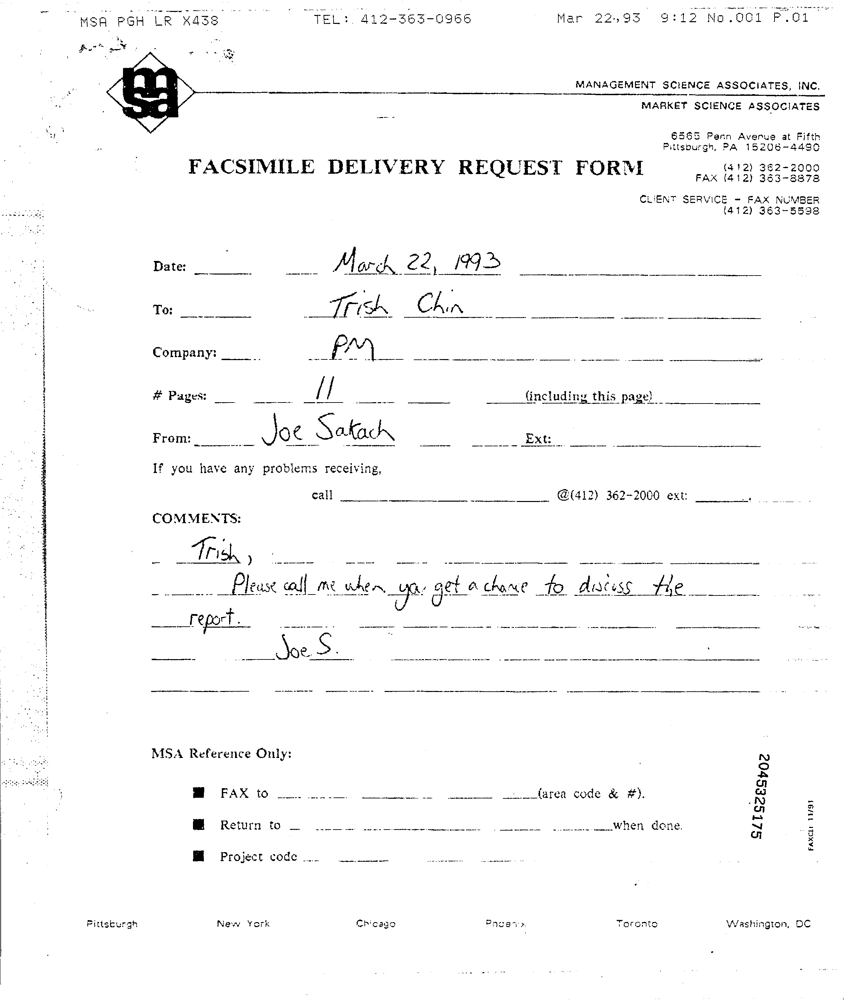 MSA PGH LR X438 TEL: 412-363-0966 Mar 22,93 9:12 No.001 P.01
msa
MANAGEMENT SCIENCE ASSOCIATES, INC.
MARKET SCIENCE ASSOCIATES
6565 Penn Avenue at Fifth
Pittsburgh, PA 15206-4490
FACSIMILE DELIVERY REQUEST FORM
(412) 362-2000
FAX (412) 363-8878
CLIENT SERVICE - FAX NUMBER
(412) 363-5598
Date: March 22, 1993
To: Trish Chin
Company: PM
# Pages: 11 (including this page)
From: Joe Satach Ext:
If you have any problems receiving,
call @(412) 362-2000 ext:
COMMENTS:
Trish,
Please call me when you get a chance to discuss the
report.
Joe S.
MSA Reference Only:
FAX to (area code & #).
Return to when done.
Project code
2045325175
FAXCL 11/91
Pittsburgh New York Chicago Phoenix Toronto Washington, DC